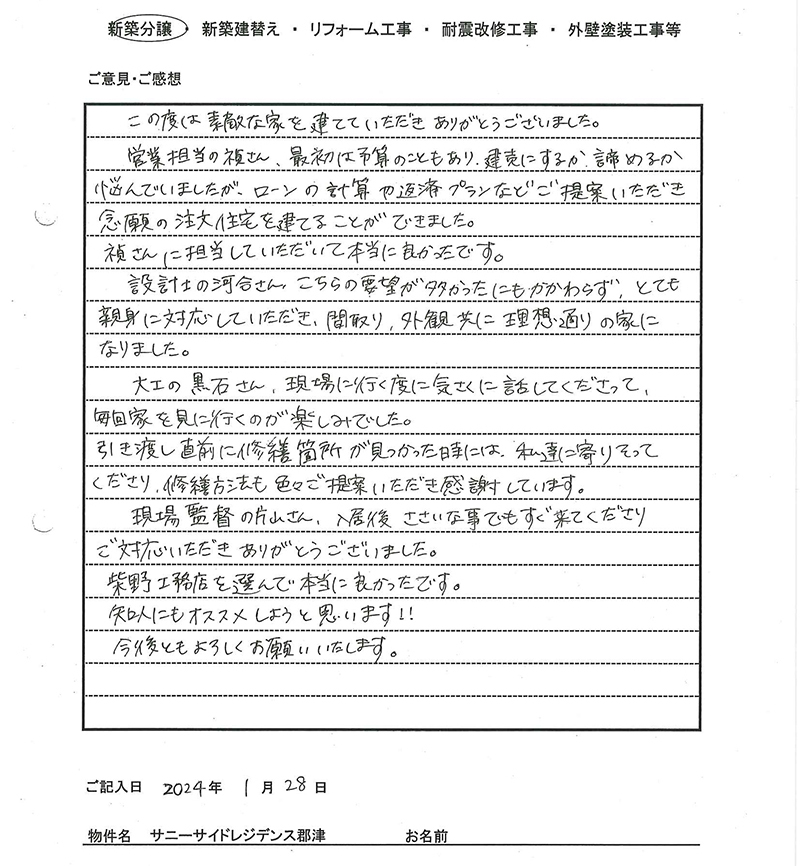 新築分譲 ・ 新築建替え ・ リフォーム工事 ・ 耐震改修工事 ・ 外壁塗装工事等
ご意見・ご感想
この度は素敵な家を建てていただきありがとうございました。
営業担当の禎さん、最初は予算のこともあり、建売にするか、諦めるか
悩んでいましたが、ローンの計算や返済プランなどご提案いただき
念願の注文住宅を建てることができました。
禎さんに担当していただいて本当に良かったです。
設計士の河合さん、こちらの要望が多かったにもかかわらず、とても
親身に対応していただき、間取り、外観共に理想通りの家に
なりました。
大工の黒石さん、現場に行く度に気さくに話してくださって、
毎回家を見に行くのが楽しみでした。
引き渡し直前に修繕箇所が見つかった時には、私達に寄りそって
くださり、修繕方法も色々ご提案いただき感謝しています。
現場監督の片山さん、入居後ささいな事でもすぐ来てくださり
ご対応いただきありがとうございました。
柴野工務店を選んで本当に良かったです。
知人にもオススメしようと思います!!
今後ともよろしくお願いいたします。
ご記入日 2024年 1月 28日
物件名 サニーサイドレジデンス郡津 お名前